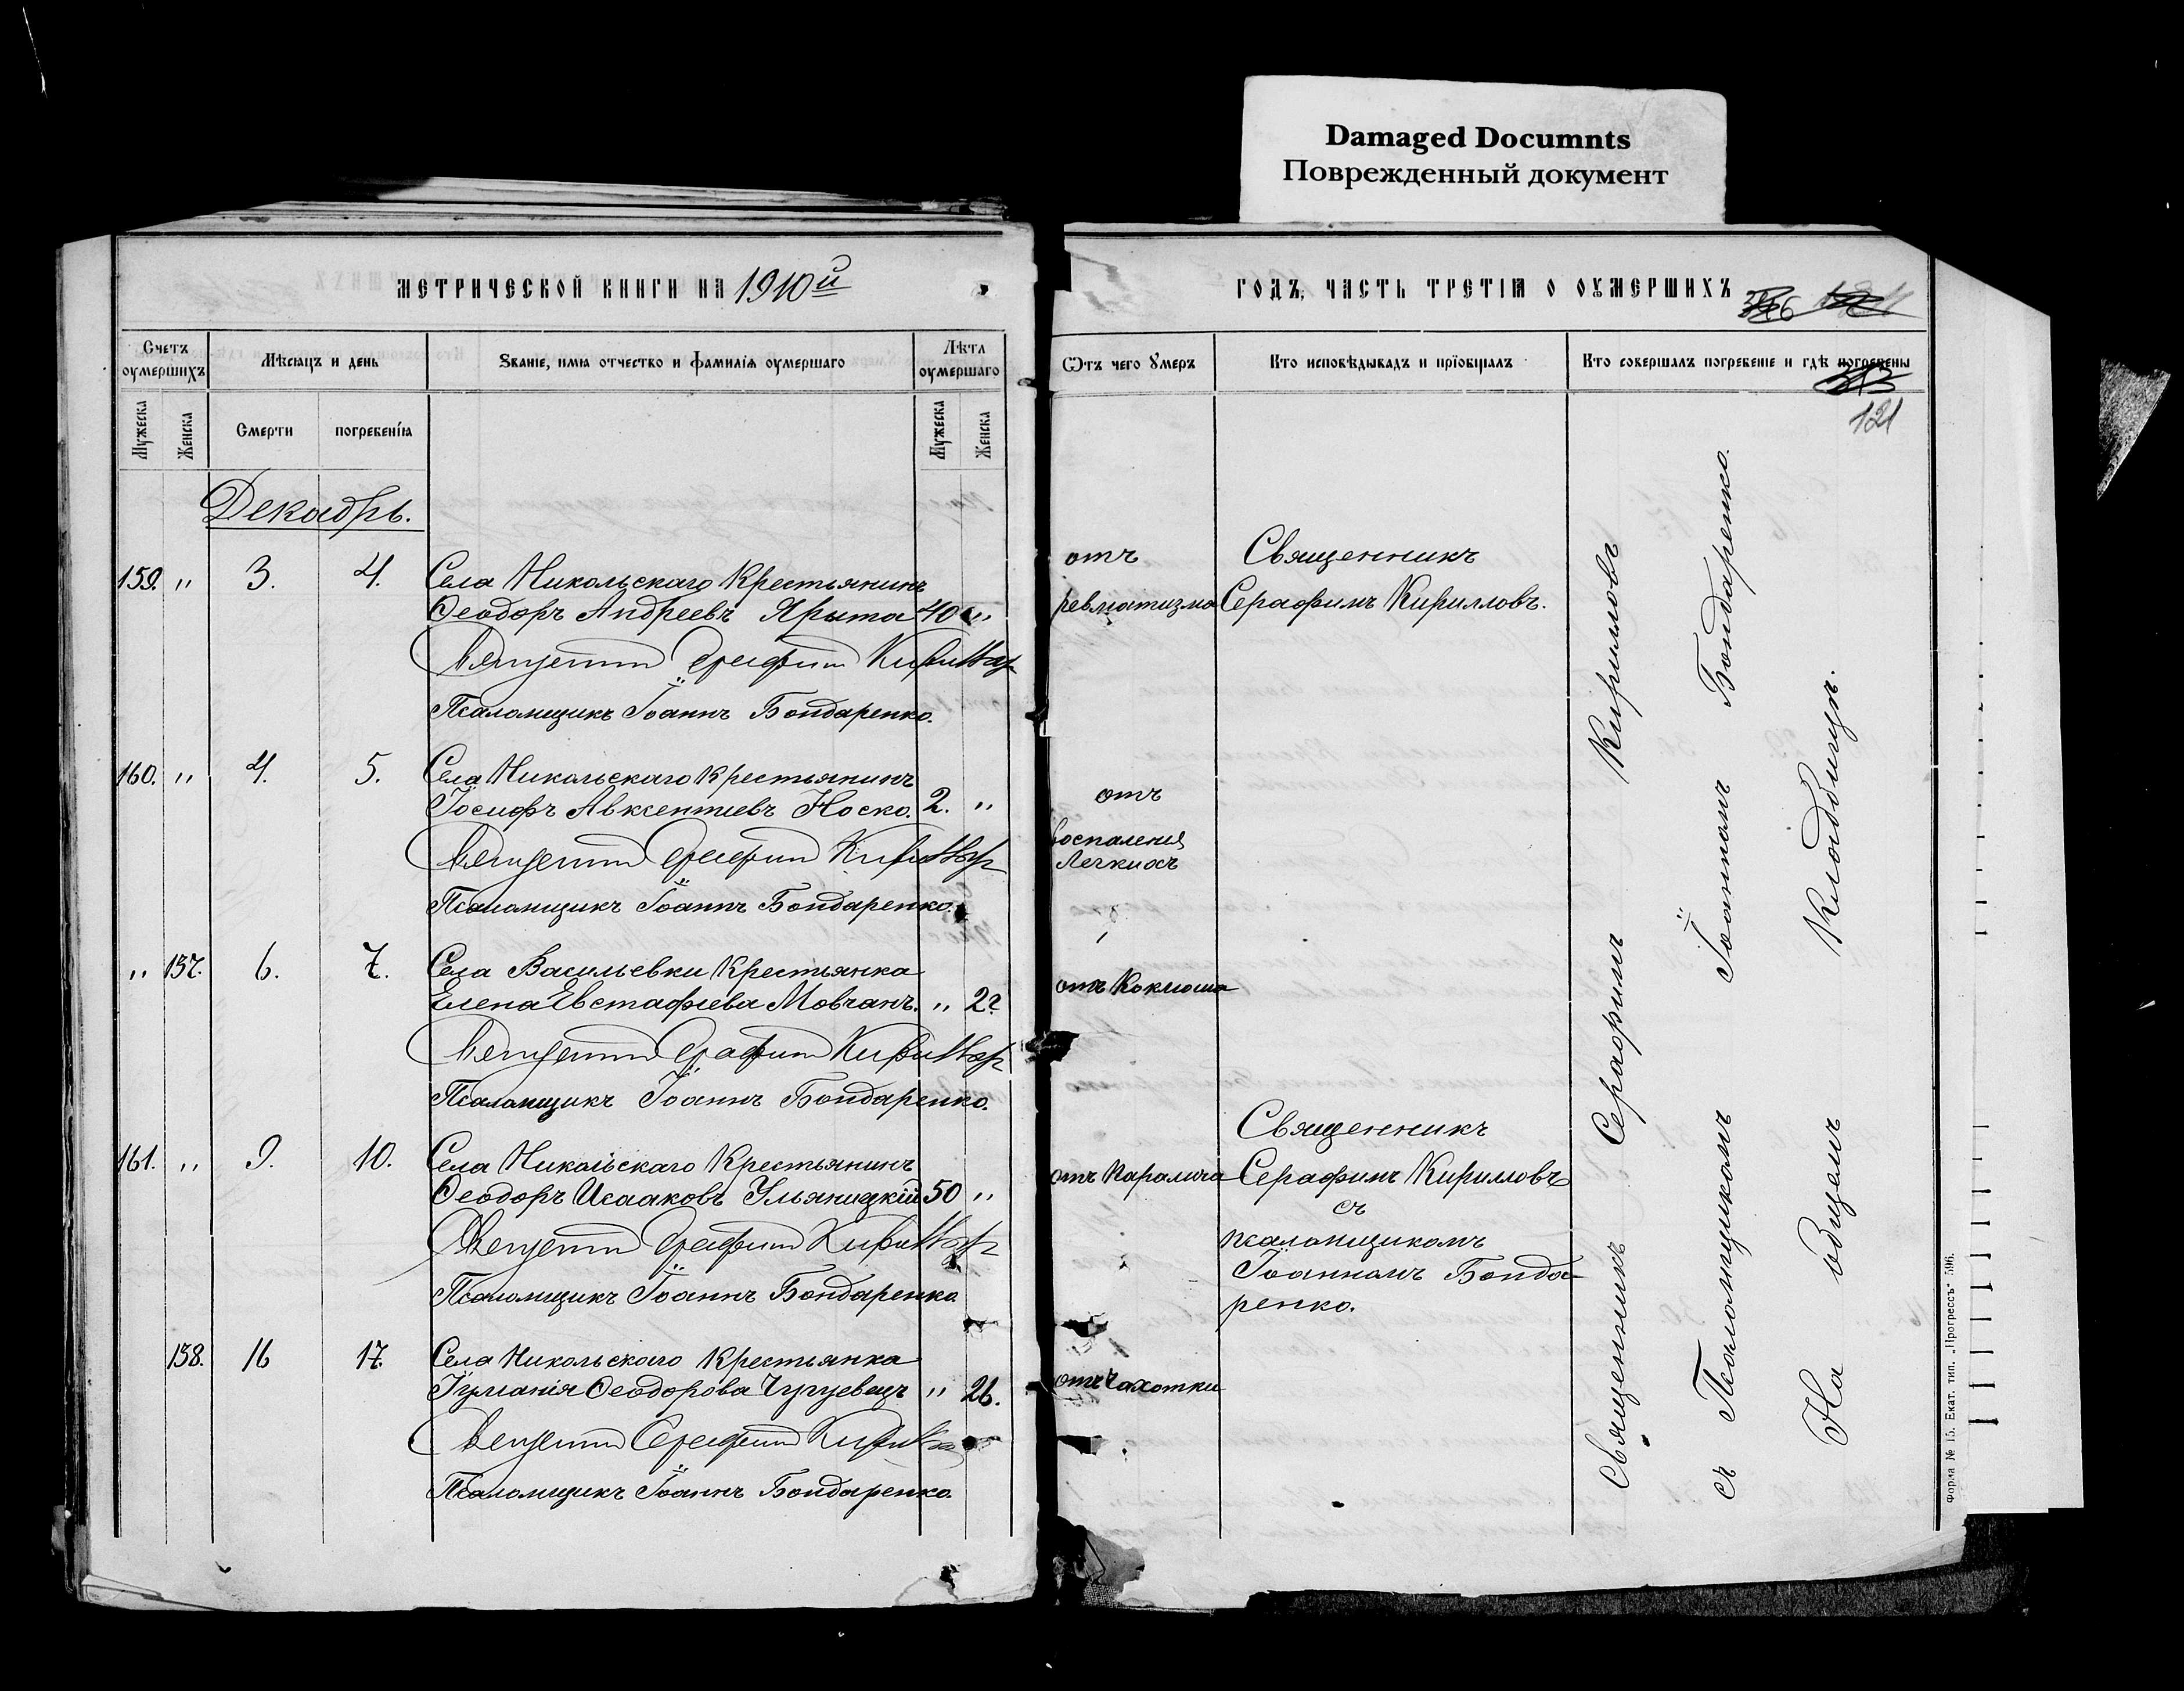 Damaged Documnts
Поврежденный документ
МЕТРИЧЕСКОЙ КНИГИ НА 1910й
ГОДЪ, ЧАСТЬ ТРЕТІЯ О ОУМЕРШИХЪ
Счетъ оумершихъ
Мѣсяцъ и день
Званіе, имя отчество и фамилія оумершаго
Лѣта оумершаго
Ѿтъ чего Умеръ
Кто исповѣдывалъ и пріобщалъ
Кто совершалъ погребеніе и гдѣ погребены
121
Мужеска
Женска
Смерти
погребенія
Мужеска
Женска
Декабрь.
159. " 3. 4. Села Никольскаго Крестьянинъ
Ѳеодоръ Андреевъ Ярыта 40 "
отъ
ревматизма
Священникъ
Серафимъ Кирилловъ.
Священникъ Серафимъ Кирилловъ
Псаломщикъ Іоаннъ Бондаренко.
160. " 4. 5. Села Никольскаго Крестьянинъ
Іосифъ Авксентіевъ Носко. 2. "
отъ
воспаленія
Легкихъ
Священникъ Серафимъ Кирилловъ
Псаломщикъ Іоаннъ Бондаренко.
" 157. 6. 7. Села Васильевки Крестьянка
Елена Евстафіева Мовчанъ. " 2?
отъ Коклюша
Священникъ Серафимъ Кирилловъ
Псаломщикъ Іоаннъ Бондаренко.
161. " 9. 10. Села Никольскаго Крестьянинъ
Ѳеодоръ Исааковъ Ульяницкій 50 "
отъ Паралича
Священникъ
Серафимъ Кирилловъ
съ
псаломщикомъ
Іоанномъ Бонда-
ренко.
Священникъ Серафимъ Кирилловъ
Псаломщикъ Іоаннъ Бондаренко.
158. 16 17. Села Никольскаго Крестьянка
Іуліанія Ѳеодорова Чугуевецъ " 26.
отъ Чахотки
Священникъ Серафимъ Кирилловъ
Псаломщикъ Іоаннъ Бондаренко.
Священникъ Серафимъ Кирилловъ
съ Псаломщикомъ Іоанномъ Бондаренко.
На общемъ Кладбищѣ.
Форма № 15. Екат. тип. „Прогрессъ" 596.